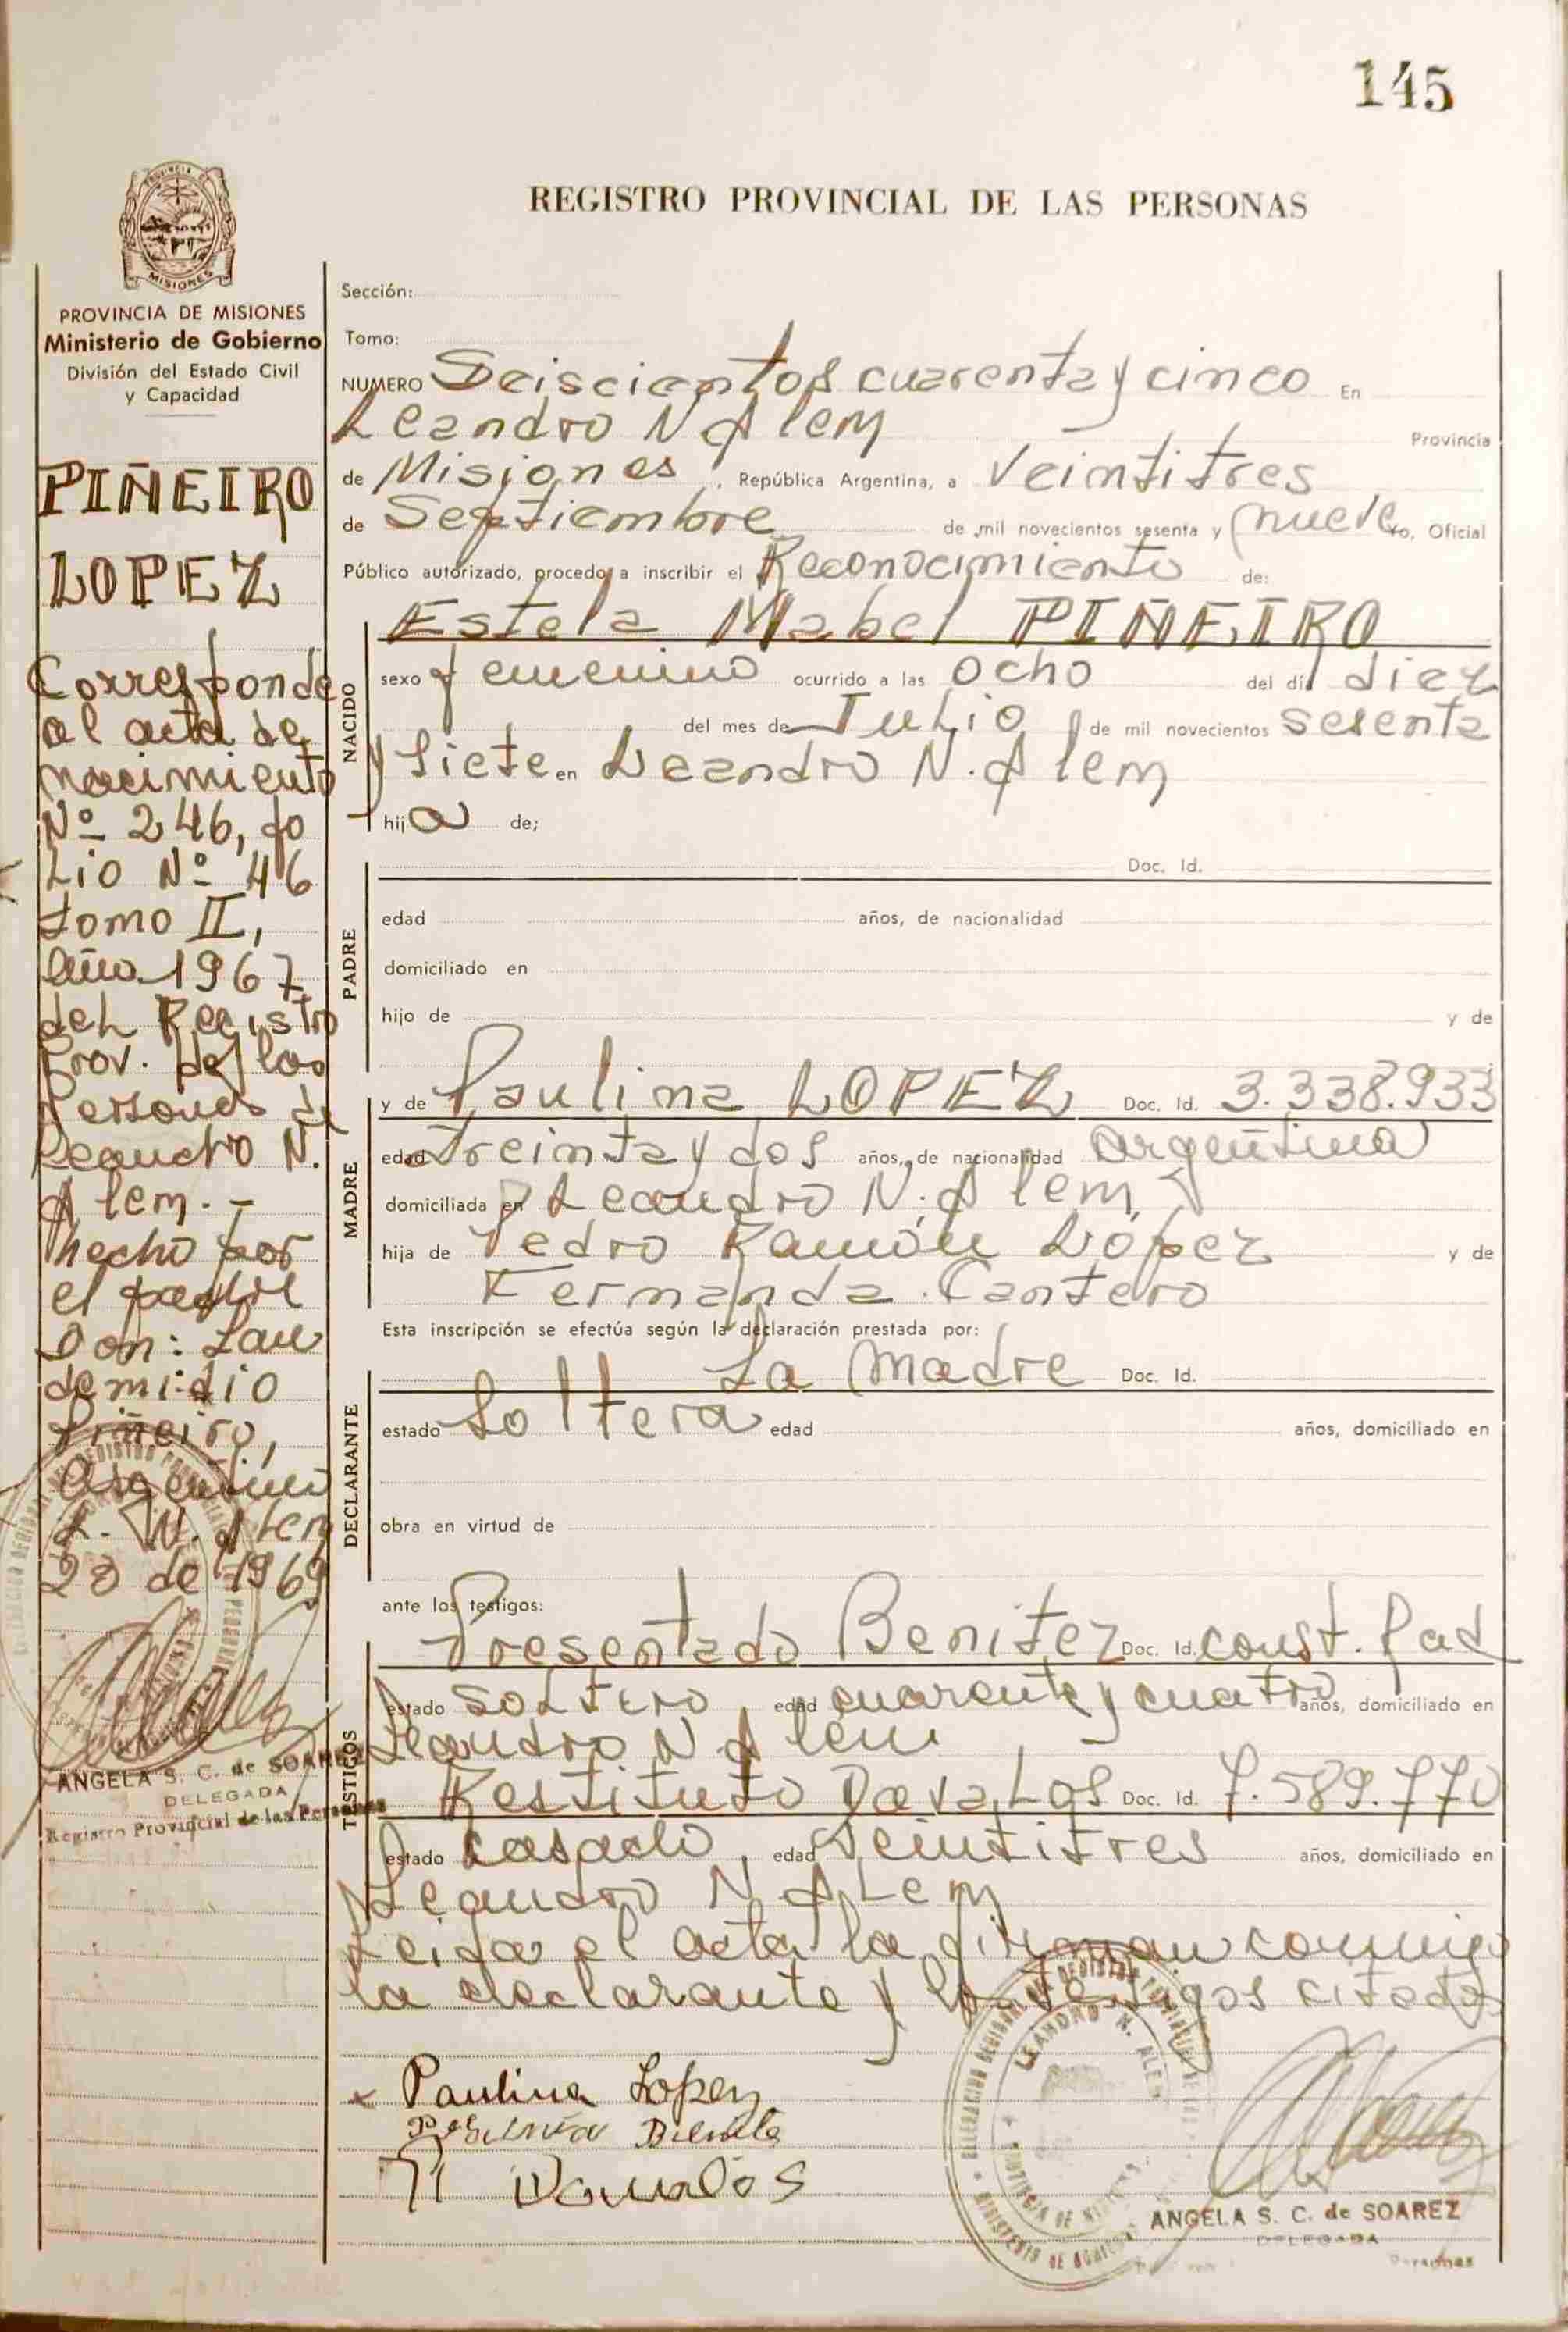 145
REGISTRO PROVINCIAL DE LAS PERSONAS
PROVINCIA DE MISIONES
Ministerio de Gobierno
División del Estado Civil
y Capacidad
PIÑEIRO
LOPEZ
Corresponde
al acta de
nacimiento
Nº 246, fo
lio Nº 46
tomo II,
Año 1967
del Registro
Prov. de las
Personas de
Leandro N.
Alem. -
hecho por
el padre
Don: Lau
demidio
Piñeiro,
Argentino
L. N. Alem
23 de 1969
ANGELA S. C. de SOAREZ
DELEGADA
Registro Provincial de las Personas
Sección:
Tomo:
NUMERO Seiscientos cuarenta y cinco En
Leandro N Alem Provincia
de Misiones, República Argentina, a Veintitres
de Septiembre de mil novecientos sesenta y nueve yo, Oficial
Público autorizado, procedo a inscribir el Reconocimiento de:
NACIDO
Estela Mabel PIÑEIRO
sexo femenino ocurrido a las ocho del día diez
del mes de Julio de mil novecientos sesenta
y siete en Leandro N. Alem
hija de;
PADRE
Doc. Id.
edad años, de nacionalidad
domiciliado en
hijo de y de
MADRE
y de Paulina LOPEZ Doc. Id. 3.338.933
edad treinta y dos años, de nacionalidad argentina
domiciliada en Leandro N. Alem
hija de Pedro Ramón López y de
Fernanda Cantero
Esta inscripción se efectúa según la declaración prestada por:
DECLARANTE
La Madre Doc. Id.
estado Soltera edad años, domiciliado en
obra en virtud de
ante los testigos:
TESTIGOS
Presentado Benitez Doc. Id. const. Pad
estado soltero, edad cuarenta y cuatro años, domiciliado en
Leandro N Alem
Restituto Davalos Doc. Id. 7.589.770
estado casado, edad Veintitres años, domiciliado en
Leandro N Alem
Leida el acta la firman conmigo
la declarante y los testigos citados
x Paulina Lopez
Davalos
LEANDRO N. ALEM
ANGELA S. C. de SOAREZ
DELEGADA
Personas